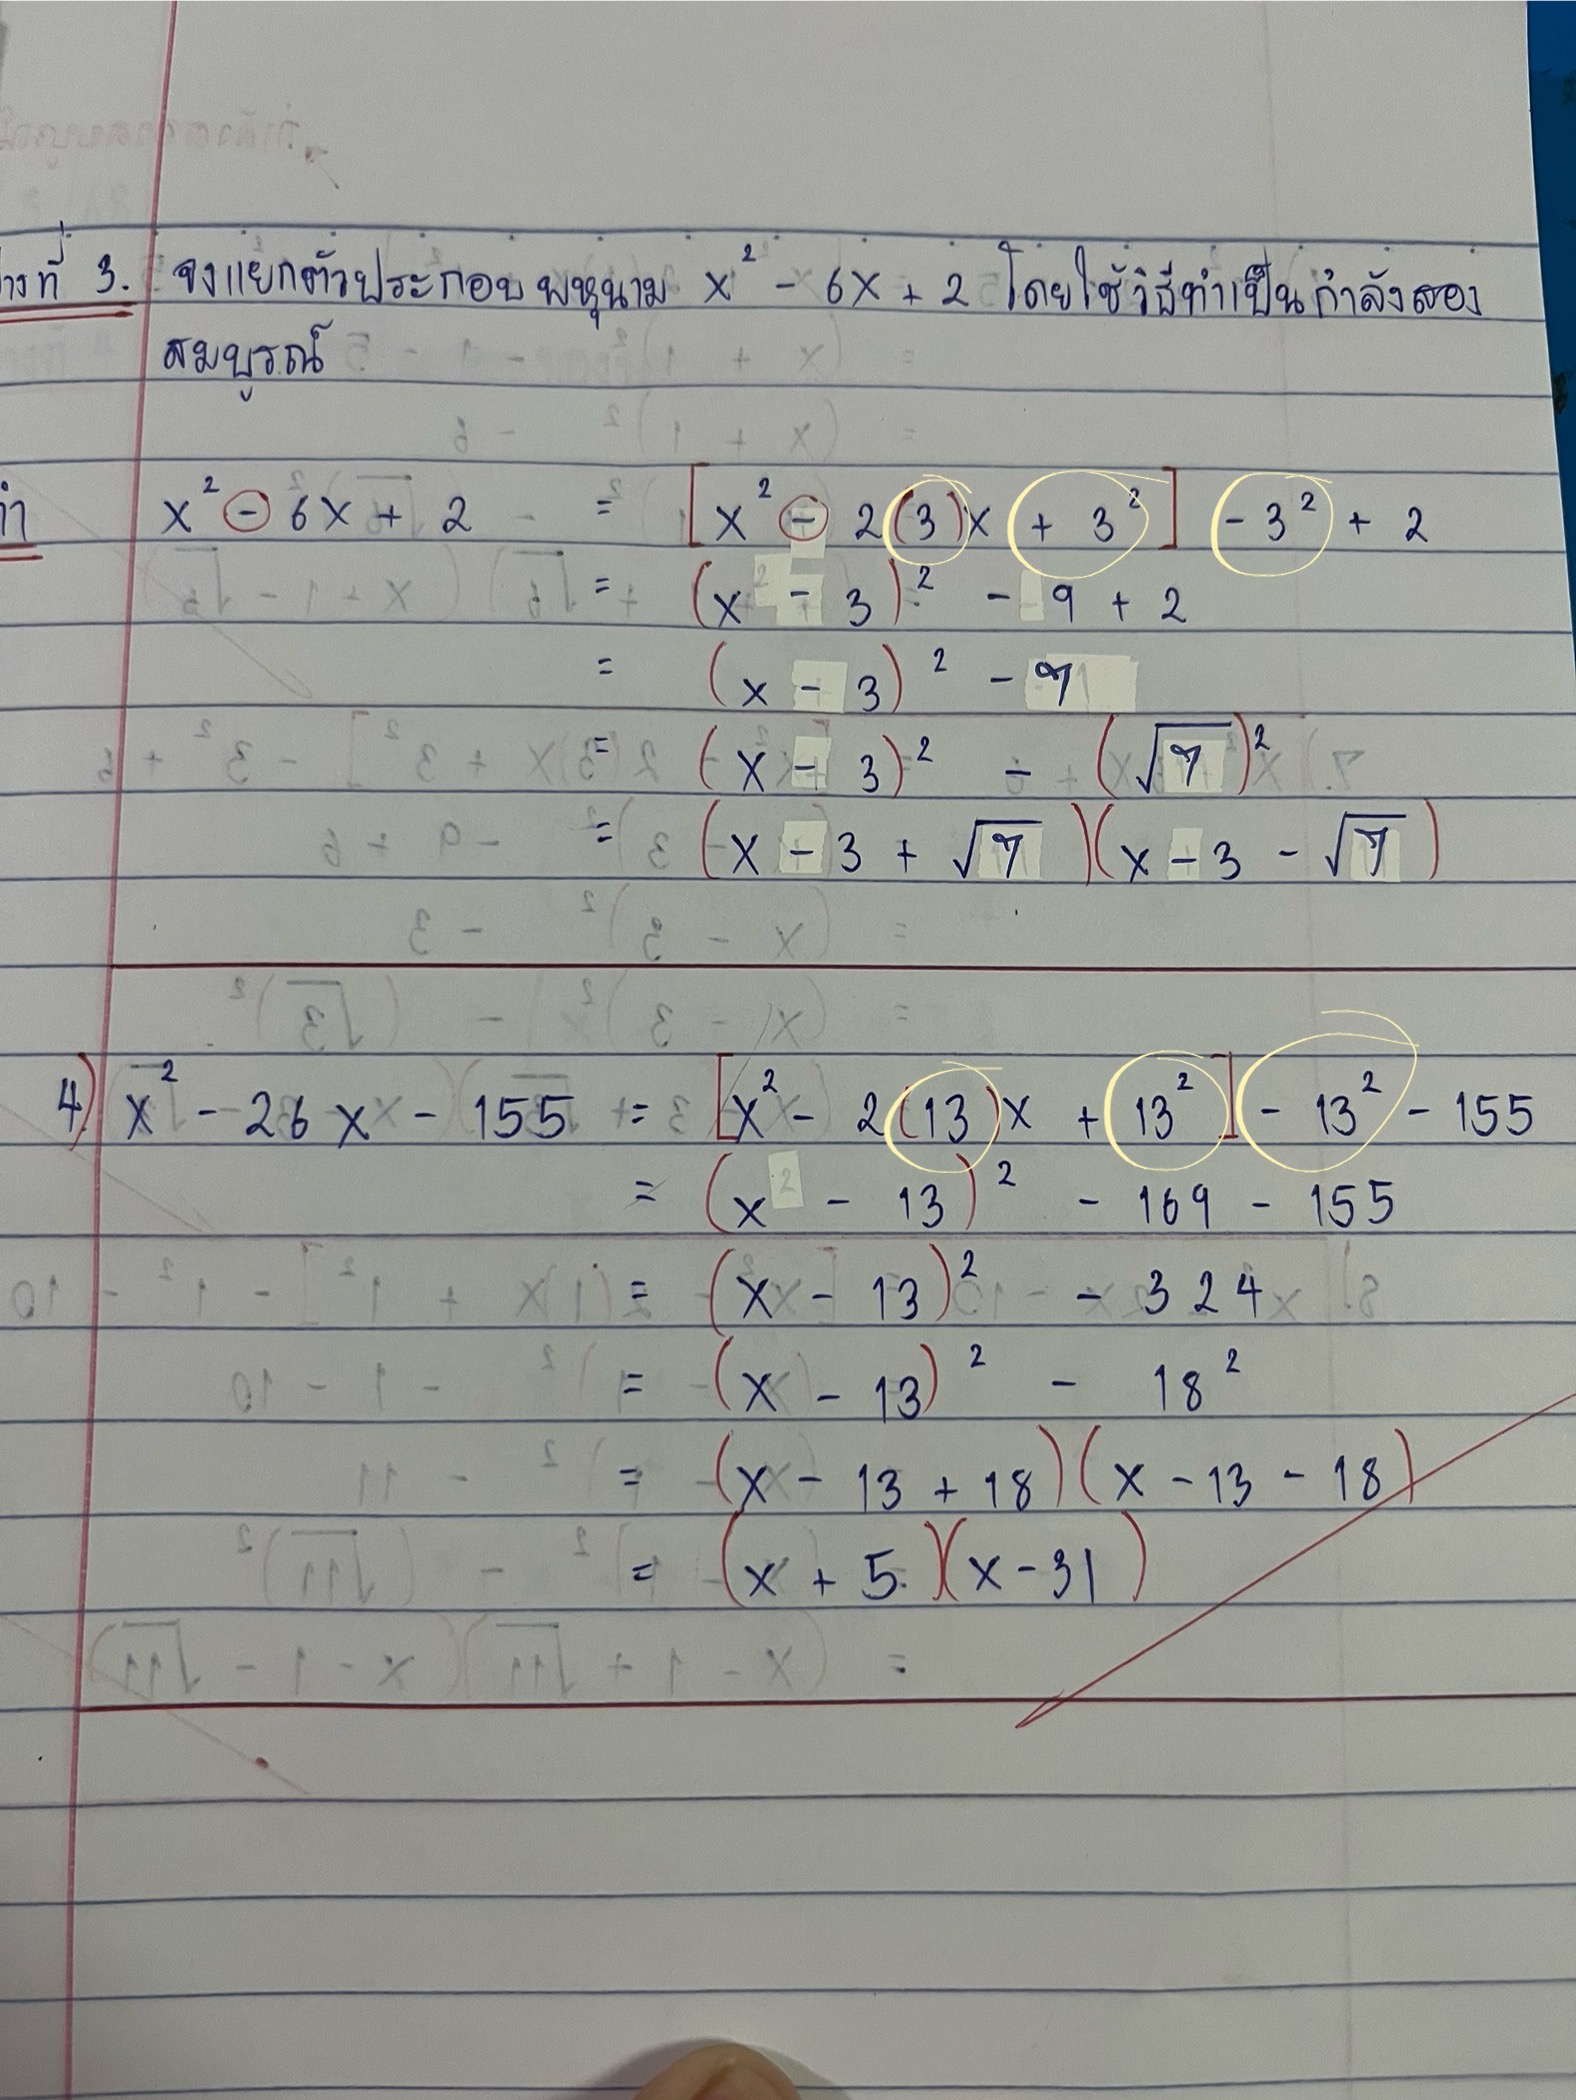 างที่ 3. จงแยกตัวประกอบพหุนาม x² - 6x + 2 โดยใช้วิธีทำเป็นกำลังสอง
สมบูรณ์
ทำ x² - 6x + 2 = [x² - 2(3)x + 3²] - 3² + 2
= (x - 3)² - 9 + 2
= (x - 3)² - 7
= (x - 3)² - (√7)²
= (x - 3 + √7)(x - 3 - √7)
4) x² - 26x - 155 = [x² - 2(13)x + 13²] - 13² - 155
= (x - 13)² - 169 - 155
= (x - 13)² - 324
= (x - 13)² - 18²
= (x - 13 + 18)(x - 13 - 18)
= (x + 5)(x - 31)